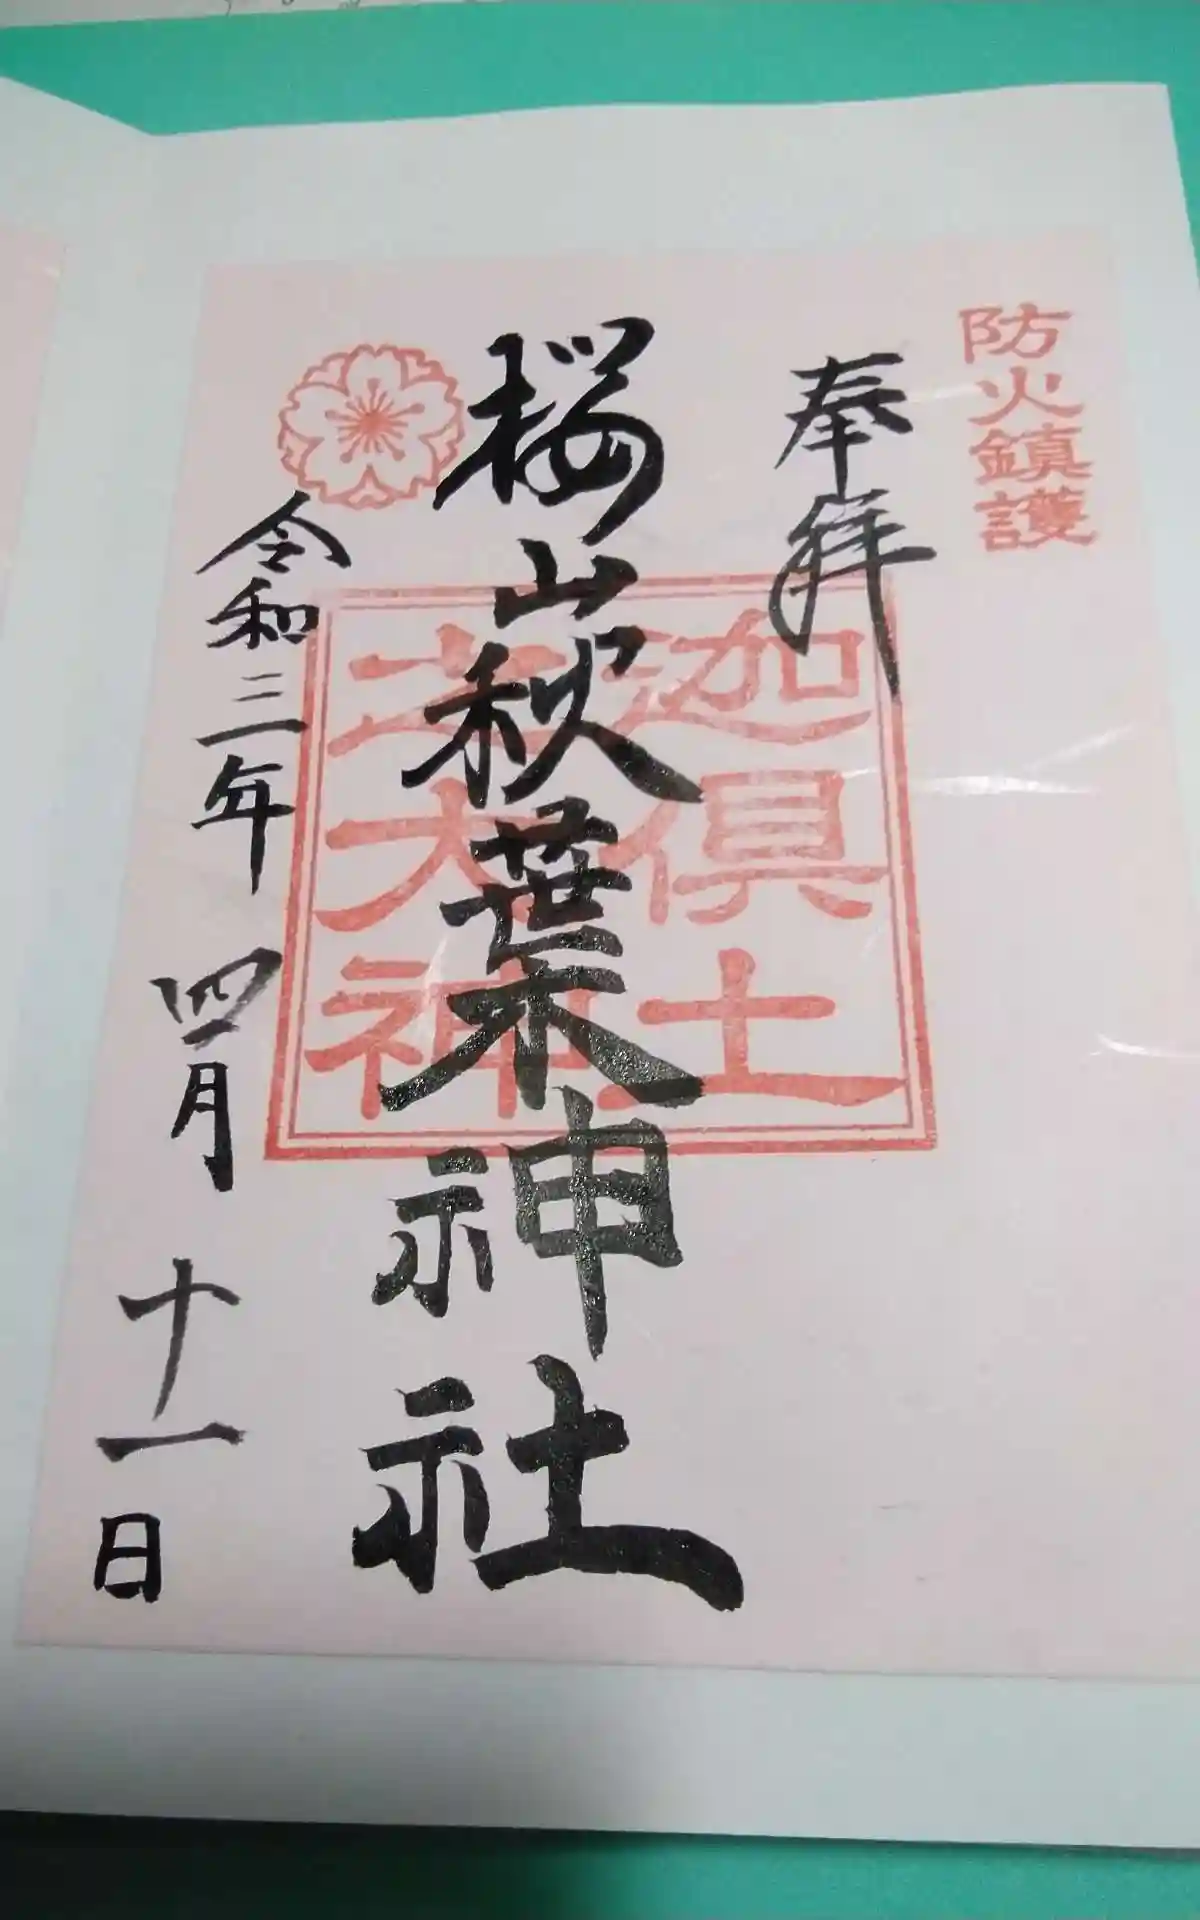 防火鎮護
奉拜
迦倶土
之大神
桜山秋葉神社
令和三年 四月 十一日